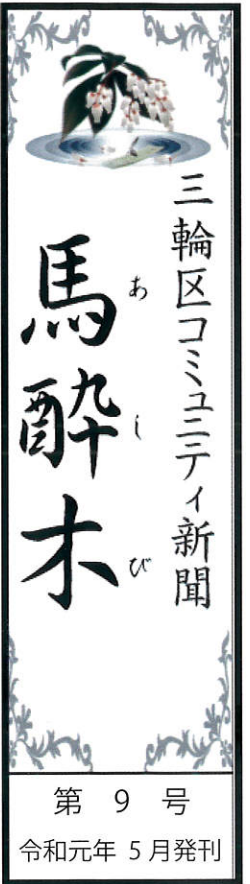 三輪区コミュニティ新聞
馬酔木
あしび
第 9 号
令和元年 5月発刊